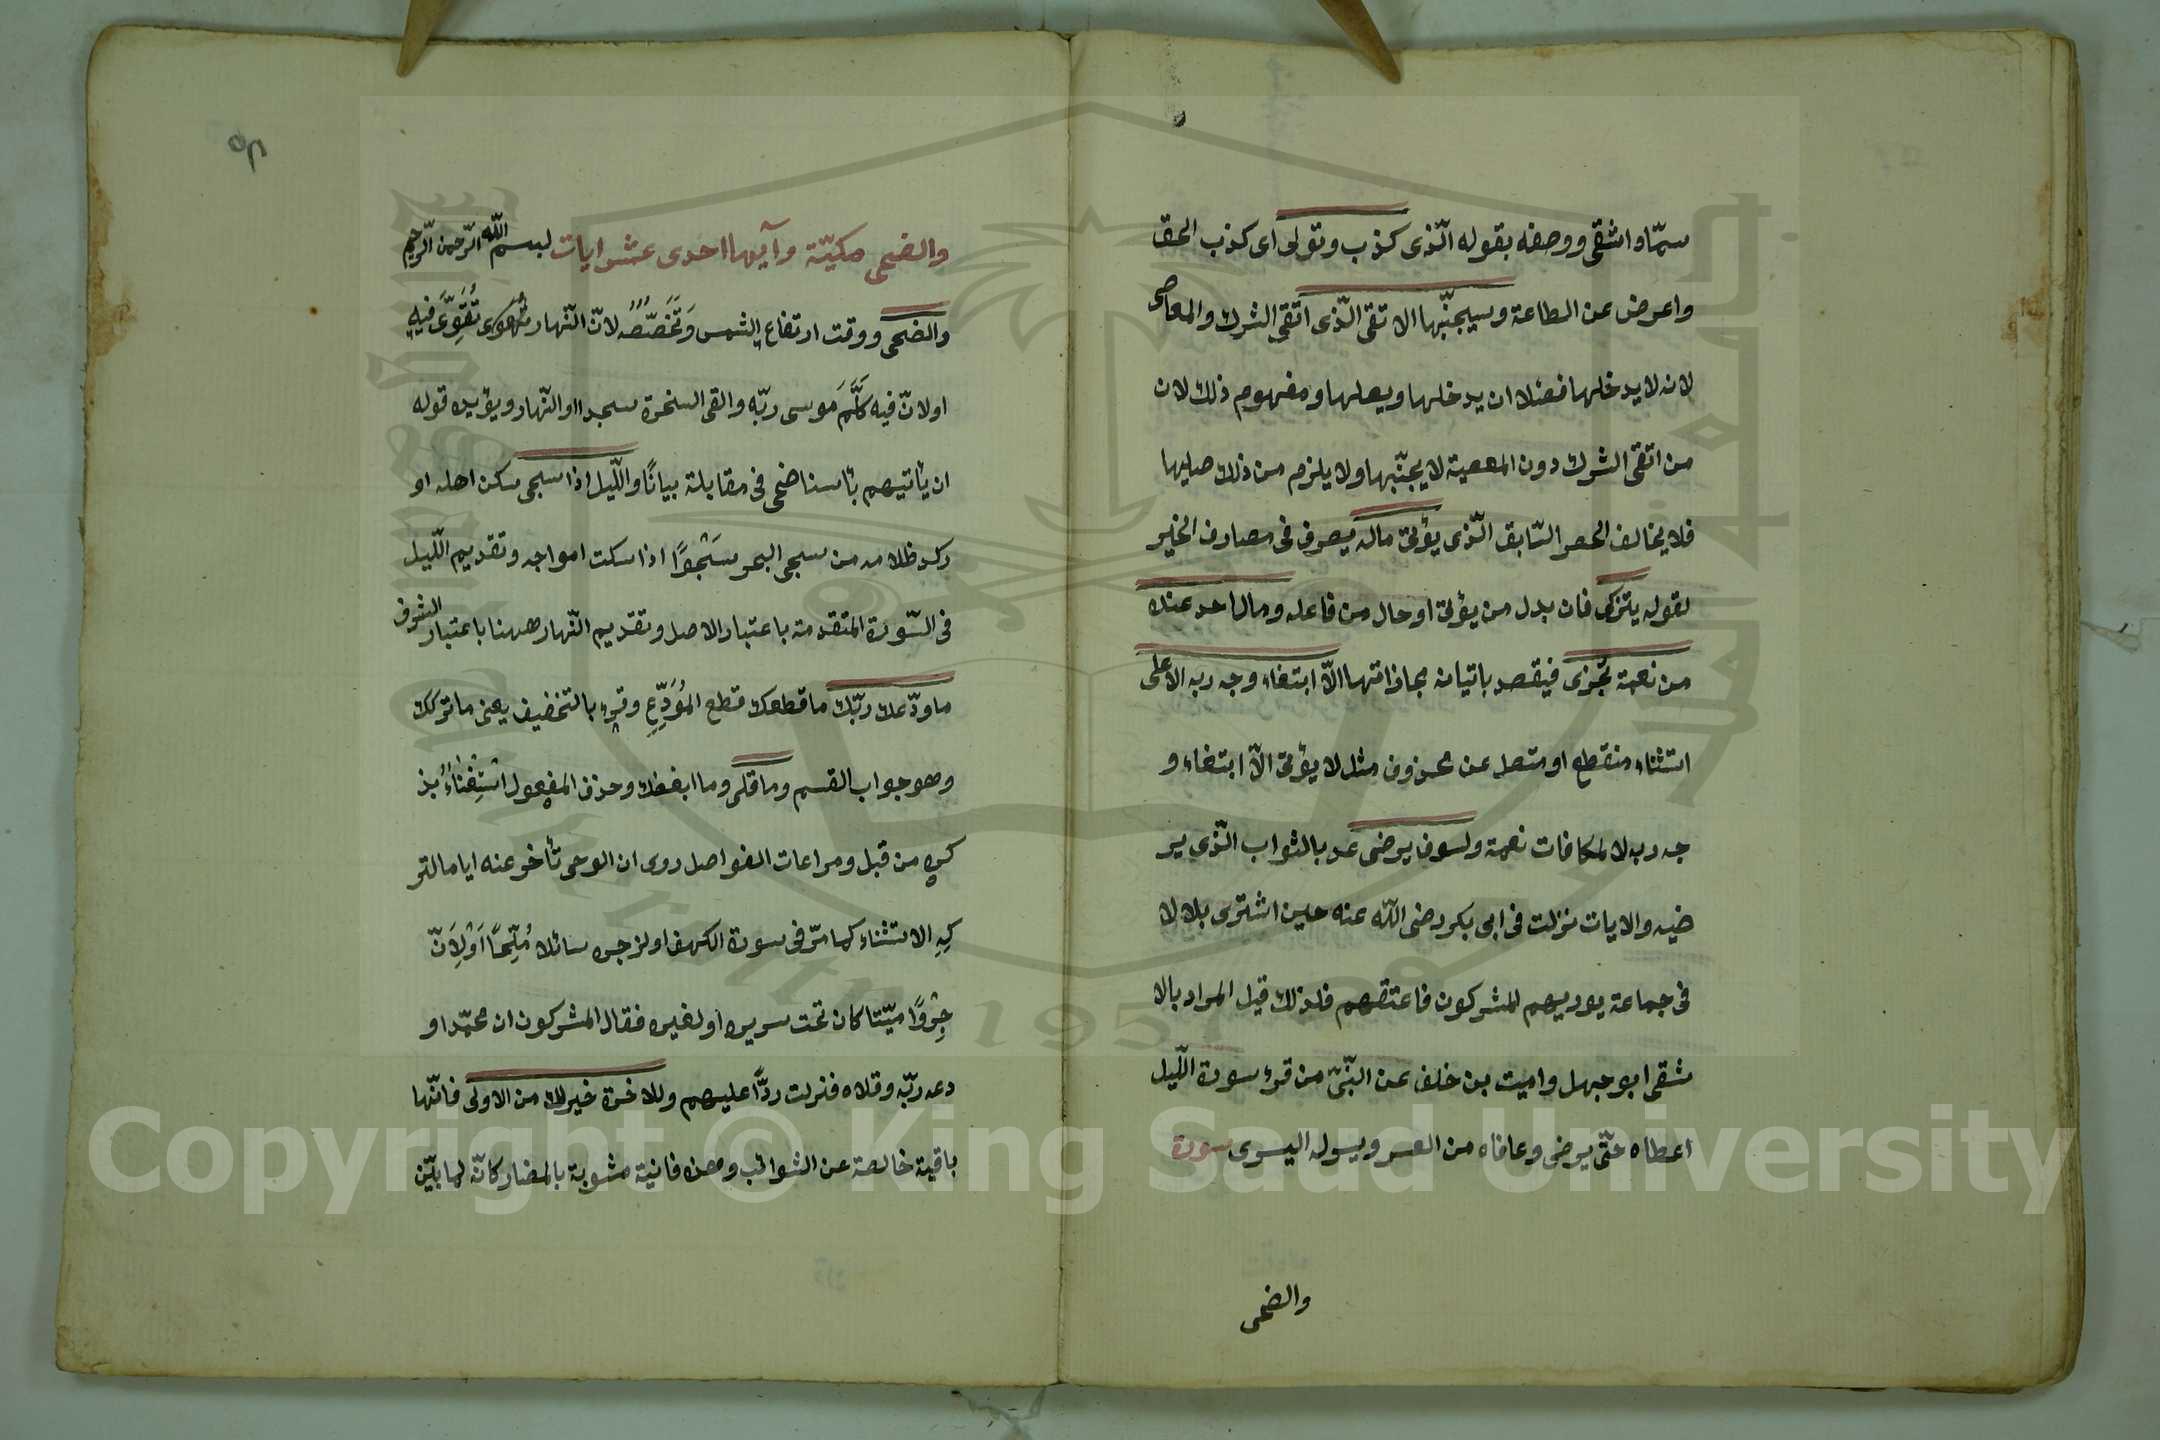 سمّاه اشقى ووصفه بقوله الّذى كذب وتولى اى كذب الحق
واعرض عن الطاعة وسيجنّبها الاتقى الّذى اتقى الشرك والمعاصى
لانه لا يدخلها فضلا ان يدخلها ويصلها ومفهوم ذلك لان
من اتقى الشرك دون المعصية لا يجنّبها ولا يلزم من ذلك صليها
فلا يخالف الحصر السّابق الّذى يؤتى ماله يصرف فى مصارف الخير
لقوله يتزكى فانه بدل من يؤتى او حال من فاعله وما لاحد عنده
من نعمة تجزى فيقصد باتيانه مجازاتها الّا ابتغاء وجه ربه الاعلى
استثناء منقطع او متصل عن محزوف مثل لا يؤتى الّا ابتغاء و
جه ربه لا لمكافات نعمة ولسوف يرضى عد بالثواب الّذى ير
ضيه والايات نزلت فى ابى بكر رضى اللّه عنه حين اشترى بلالا
فى جماعة يوديهم المشركون فاعتقهم فلذلك قيل المراد بالا
شقى ابو جهل واميت بن خلف عن النبّى من قرء سورة اللّيل
اعطاه حتّى يرضى وعافاه من العسر ويسر له اليسرى سورة
والضحى
٥٨
والضحى مكيّة وآيها احدى عشر ايات بسم اللّه الرّحمن الرّحيم
والضحى ووقت ارتفاع الشمس وتخصّصه لانّ النّهار تقوى فيه
او لانّ فيه كلّم موسى ربّه والقى السخرة سجدا او النّهار ويؤيده قوله
ان يأتيهم بأسنا ضحى فى مقابلة بياتًا واللّيل اذا سجى سكن اهله او
ركد ظلامه من سجى البحر سَجْوًا اذا سكت امواجه وتقديم اللّيل
فى السّورة المتقدمة باعتبار الاصل وتقديم النّهار ههنا باعتبار الشرف
ما ودّعك ربّك ما قطعك قطع المُوَدِّعِ وقرء بالتخفيف يعنى ما تركك
وهو جواب القسم وما قلى وما ابغضك وحذف المفعول استغناء بذ
كره من قبل ومراعات الفواصل روى ان الوحى تأخر عنه اياما لتر
كِه الاستثناء كما مرّ فى سورة الكهف او لزجره سائلا مُلِحًّا اَوْلِاَنّ
جِرْوًا ميّتا كان تحت سريره او لغيره فقال المشركون ان محمّدا و
دعه ربّه وقلاه فنزلت ردًّا عليهم وللاخرة خير لك من الاولى فانّها
باقية خالصة عن الشوائب وهذه فانية مشوبة بالمضار كانّه لما بيّن
Copyright © King Saud University
1957